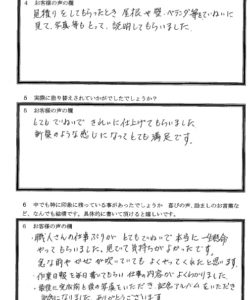 4 お客様の声の欄
見積りをしてもらったとき 屋根や壁・ベランダ等をていねいに
見て、写真等もとって、説明してもらいました。
5 実際に塗り替えされていかがでしたでしょうか？
5 お客様の声の欄
とてもていねいで きれいに仕上げてもらいました
新築のような感じになってとても満足です。
6 中でも特に印象に残っている事があったでしょうか 喜びの声、励ましのお言葉な
ど、なんでも結構です。具体的に書いて頂けると嬉しいです。
6 お客様の声の欄
・職人さんの仕事ぶりが とてもていねいで本当に一生懸命
やってもらいました。見ていて気持ちがよかったです。
急な雨やぜが吹いていても よくやってくれたと思います。
・作業日報を毎日書いてもらい 仕事内容がよくわかりました。
・最後に完成前と後の写真をいただき、記念アルバムをいただき
ありがとうございます